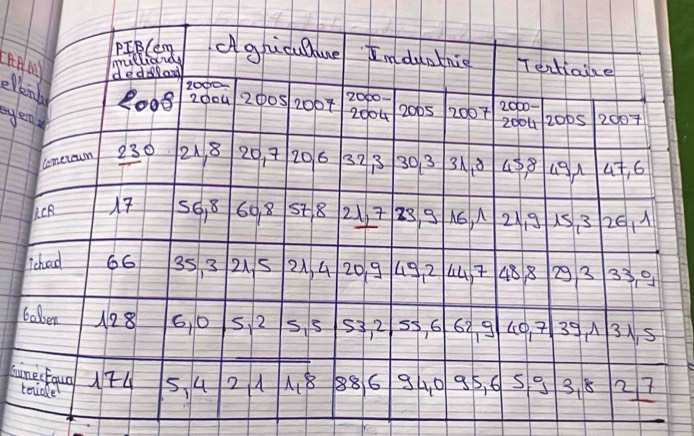 PIB (en milliards de dollars) Agriculture Industrie Tertiaire
2008 2000-2004 2005 2007 2000-2004 2005 2007 2000-2004 2005 2007
Cameroun 230 21,8 20,7 20,6 32,3 30,3 31,8 45,8 49,1 47,6
RCA 17 56,8 60,8 57,8 21,7 23,9 16,1 21,9 15,3 26,1
Tchad 66 35,3 21,5 21,4 20,9 49,2 44,7 48,8 29,3 33,9
Gabon 128 6,0 5,2 5,5 53,2 55,6 62,9 40,7 39,1 31,5
Guinée Equa
toriale 174 5,4 2,1 1,8 88,6 94,0 95,6 5,9 3,8 2,7